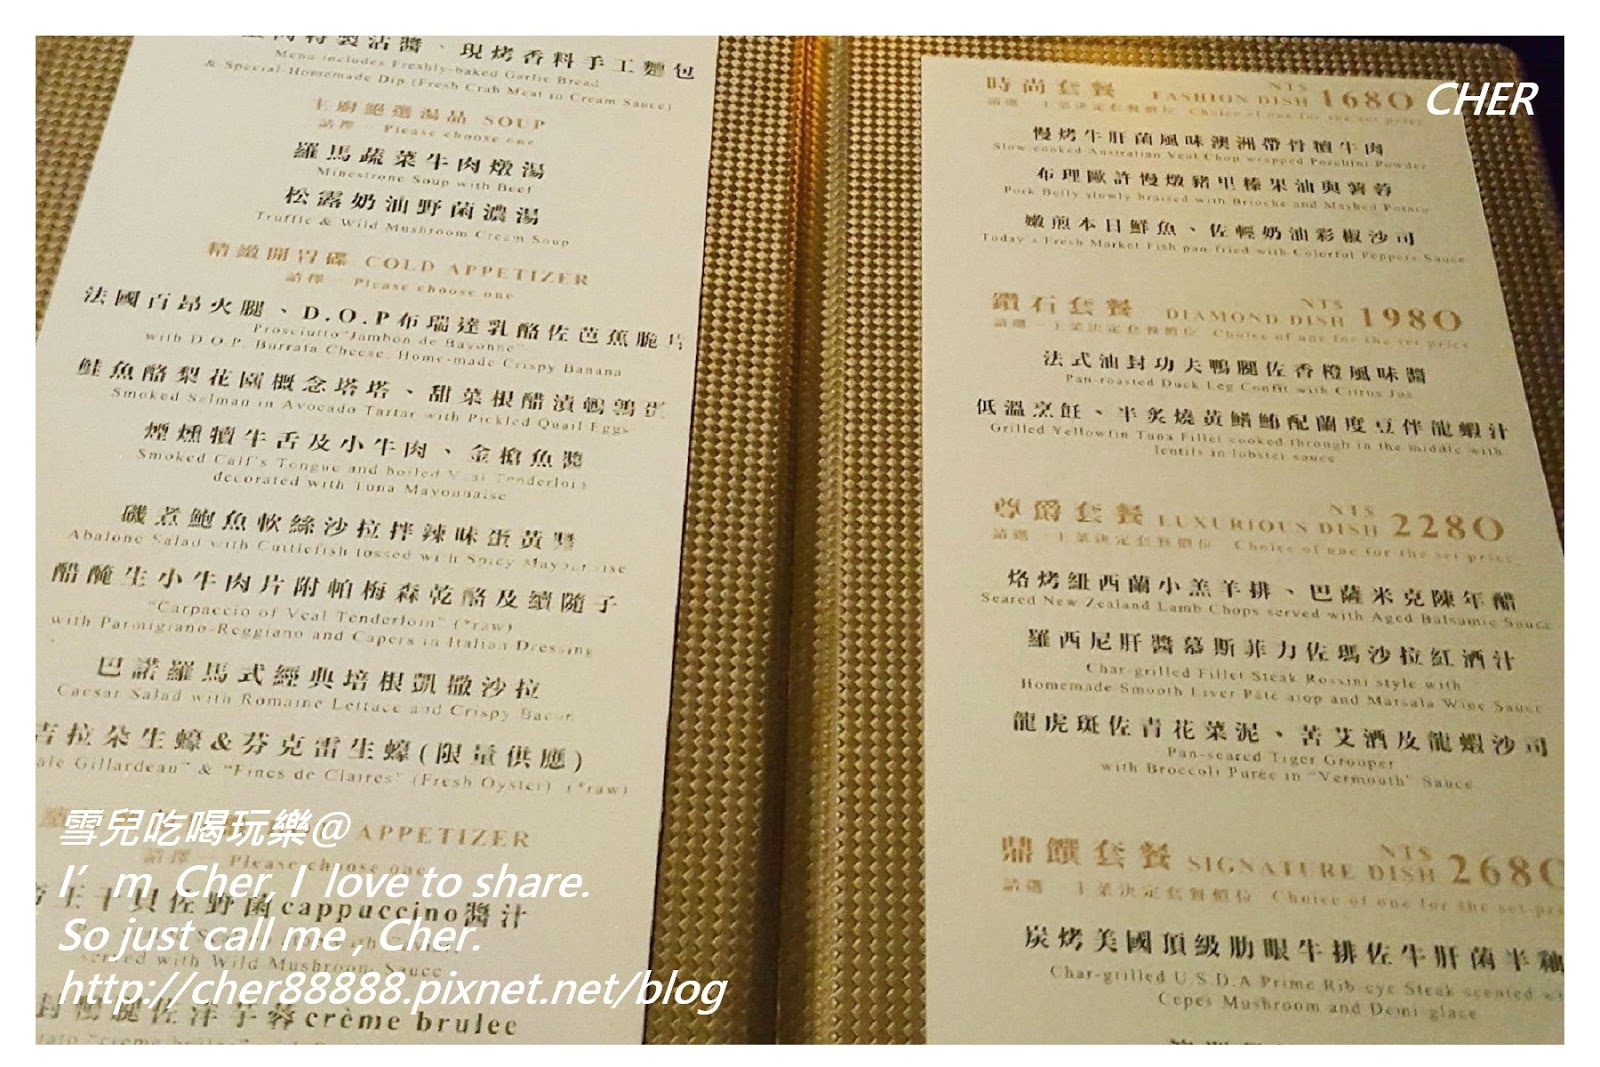 特製沾醬、現烤香料手工麵包
Menu includes Freshly-baked Garlic Bread
& Special Homemade Dip (Fresh Crab Meat in Cream Sauce)
主廚絕選湯品 SOUP
請擇一 Please choose one
羅馬蔬菜牛肉燉湯
Minestrone Soup with Beef
松露奶油野菌濃湯
Truffle & Wild Mushroom Cream Soup
精緻開胃碟 COLD APPETIZER
請擇一 Please choose one
法國百昂火腿、D.O.P布瑞達乳酪佐芭蕉脆片
Prosciutto"Jambon de Bayonne"
with D.O.P. Burrata Cheese, Home-made Crispy Banana
鮭魚酪梨花園概念塔塔、甜菜根醋漬鵪鶉蛋
Smoked Salman in Avocado Tartar with Pickled Quail Eggs
煙燻犢牛舌及小牛肉、金槍魚醬
Smoked Calf's Tongue and boiled Veal Tenderloin
decorated with Tuna Mayonnaise
磯煮鮑魚軟絲沙拉拌辣味蛋黃醬
Abalone Salad with Cuttlefish tossed with Spicy Mayonnaise
醋醃生小牛肉片附帕梅森乾酪及續隨子
"Carpaccio of Veal Tenderloin" (*raw)
with Parmigiano-Reggiano and Capers in Italian Dressing
巴諾羅馬式經典培根凱撒沙拉
Caesar Salad with Romaine Lettuce and Crispy Bacon
吉拉朵生蠔&芬克雷生蠔(限量供應)
Gillardeau" & "Fines de Claires" (Fresh Oyster) (*raw)
APPETIZER
請擇一 Please choose one
干貝佐野菌cappuccino醬汁
served with Wild Mushroom Sauce
封鴨腿佐洋芋蓉crème brulee
時尚套餐 FASHION DISH NT$ 1680
請選一主菜決定套餐價位 Choice of one for the set price
慢烤牛肝菌風味澳洲帶骨犢牛肉
Slow cooked Australian Veal Chop wrapped Porchini Powder
布理歐許慢燉豬里榛果油與薯蓉
Pork Belly slowly braised with Brioche and Mashed Potato
嫩煎本日鮮魚、佐輕奶油彩椒沙司
Today's Fresh Market Fish pan-fried with Colorful Peppers Sauce
鑽石套餐 DIAMOND DISH NT$ 1980
請選一主菜決定套餐價位 Choice of one for the set price
法式油封功夫鴨腿佐香橙風味醬
Pan-roasted Duck Leg Confit with Citrus Jus
低溫烹飪、半炙燒黃鰭鮪配蘭度豆伴龍蝦汁
Grilled Yellowfin Tuna Fillet cooked through in the middle with
lentils in lobster sauce
尊爵套餐 LUXURIOUS DISH NT$ 2280
請選一主菜決定套餐價位 Choice of one for the set price
烙烤紐西蘭小羔羊排、巴薩米克陳年醋
Seared New Zealand Lamb Chops served with Aged Balsamic Sauce
羅西尼肝醬慕斯菲力佐瑪沙拉紅酒汁
Char-grilled Fillet Steak Rossini style with
Homemade Smooth Liver Pâté atop and Marsala Wine Sauce
龍虎斑佐青花菜泥、苦艾酒及龍蝦沙司
Pan-seared Tiger Grouper
with Broccoli Purée in "Vermouth" Sauce
鼎饌套餐 SIGNATURE DISH NT$ 2680
請選一主菜決定套餐價位 Choice of one for the set
炭烤美國頂級肋眼牛排佐牛肝菌半釉
Char-grilled U.S.D.A Prime Rib-eye Steak scented
Cepes Mushroom and Demi-glace
CHER
雪兒吃喝玩樂@
I'm Cher, I love to share.
So just call me , Cher.
http://cher88888.pixnet.net/blog